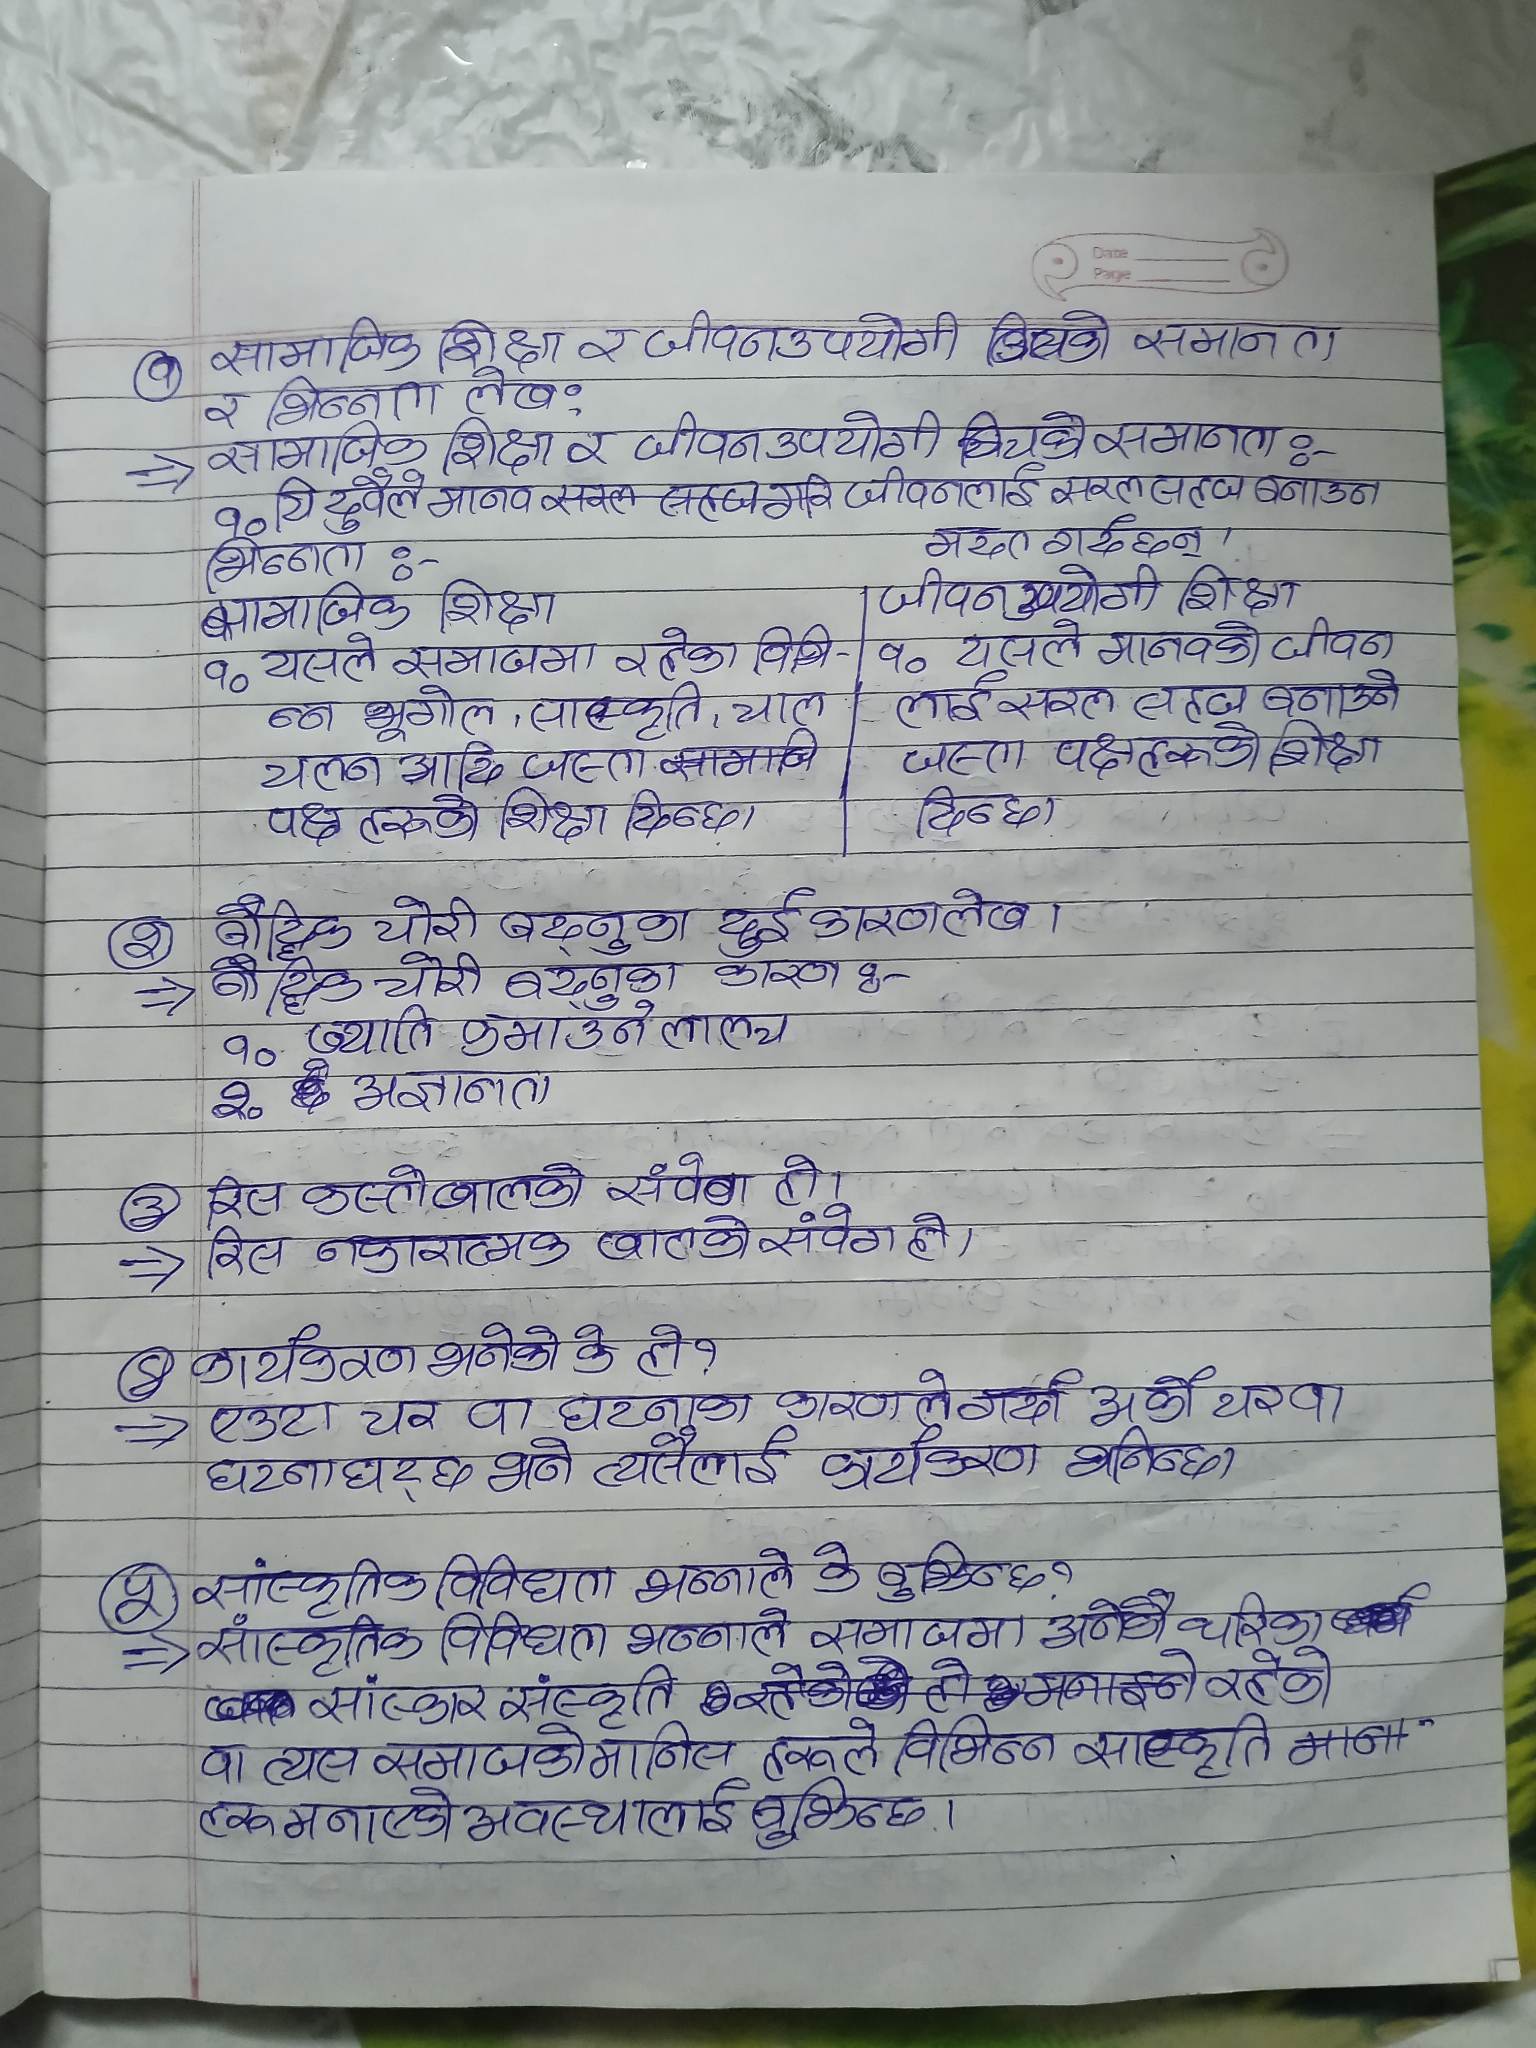 Date
Page
१ सामाजिक शिक्षा र जीवनउपयोगी बिचको समानता
र भिन्नता लेख:
⇒ सामाजिक शिक्षा र जीवनउपयोगी बिचको समानता :-
१. यि दुवैले मानव सरल सहज गरि जीवनलाई सरल सहज बनाउन
मद्दत गर्दछन्।
भिन्नता :-
सामाजिक शिक्षा
१. यसले समाजमा रहेका विभि-
न्न भूगोल, सास्कृति, चाल
चलन आदि जस्ता सामाजि
पक्ष हरूको शिक्षा दिन्छ।
जीवनउपयोगी शिक्षा
१. यसले मानवको जीवन
लाई सरल सहज बनाउने
जस्ता पक्षहरूको शिक्षा
दिन्छ।
२ बौद्धिक चोरी बढ्नुका दुई कारण लेख।
⇒ बौद्धिक चोरी बढ्नुका कारण :-
१. ख्याति कमाउने लालच
२. अज्ञानता
३ रिस कस्तो खालको संवेग हो।
⇒ रिस नकारात्मक खालको संवेग हो।
४ कार्यकरण भनेको के हो?
⇒ एउटा चर वा घटनाका कारणले गर्दा अर्को चर वा
घटना घट्छ भने त्यसैलाई कार्यकरण भनिन्छ।
५ सांस्कृतिक विविधता भन्नाले के बुझिन्छ?
⇒ सांस्कृतिक विविधता भन्नाले समाजमा अनेकै थरिका
सांस्कार संस्कृति मनाइने रहेको
वा त्यस समाजको मानिस हरूले विभिन्न सास्कृति माना
हरू मनाएको अवस्थालाई बुझिन्छ।